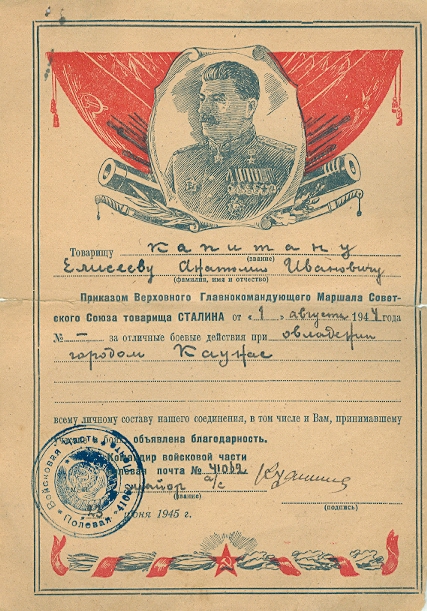 Товарищу капитану
(звание)
Елисееву Анатолию Ивановичу
(фамилия, имя и отчество)
Приказом Верховного Главнокомандующего Маршала Совет-
ского Союза товарища СТАЛИНА от «1» августа 1944 года
№ — за отличные боевые действия при овладении
городом Каунас
всему личному составу нашего соединения, в том числе и Вам, принимавшему
объявлена благодарность.
Командир войсковой части
полевая почта № 41082
майор а/с
(звание)
(подпись)
июня 1945 г.
Войсковая часть
"Полевая"